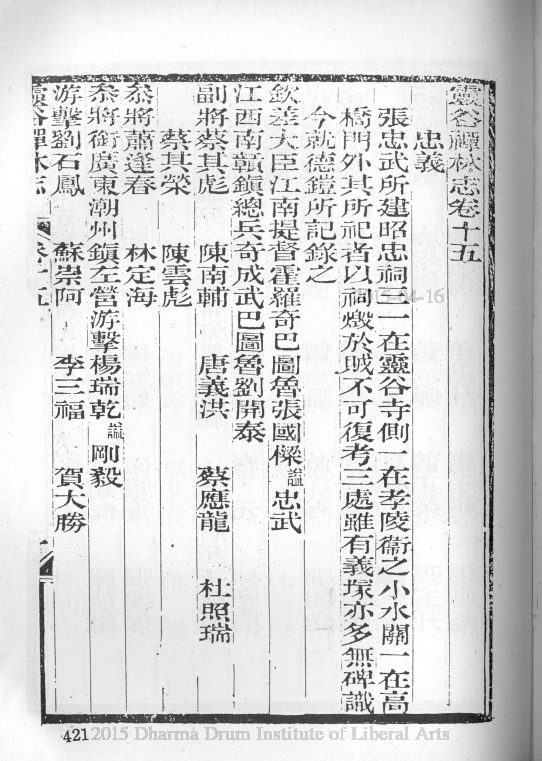 靈谷禪林志卷十五
忠義
張忠武所建昭忠祠三一在靈谷寺側一在孝陵衞之小水關一在高
橋門外其所祀者以祠燬於賊不可復考三處雖有義塚亦多無碑識
今就德鎧所記錄之
欽差大臣江南提督霍羅奇巴圖魯張國樑諡忠武
江西南贛鎭總兵奇成武巴圖魯劉開泰
副將蔡其彪 陳南輔 唐義洪 蔡應龍 杜照瑞
蔡其榮 陳雲彪
叅將蕭逢春 林定海
叅將銜廣東潮州鎭左營游擊楊瑞乾諡剛毅
游擊劉石鳳 蘇崇阿 李三福 賀大勝
靈谷禪林志 卷十五 一
2015-04-16
421 2015 Dharma Drum Institute of Liberal Arts